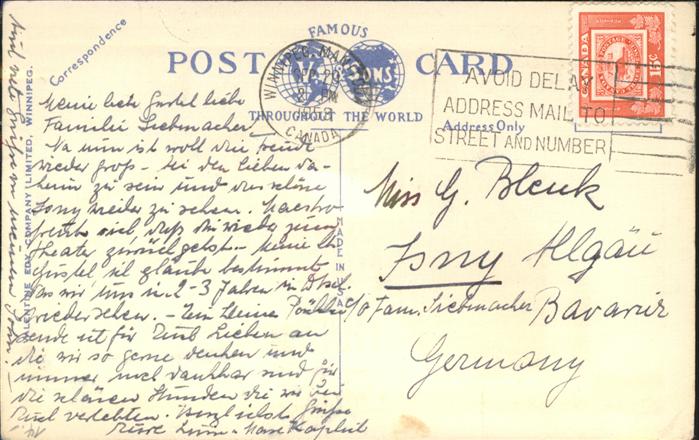 Correspondence
FAMOUS
POST CARD
THROUGHOUT THE WORLD
Address Only
VALENTINE EDY COMPANY LIMITED, WINNIPEG.
MADE IN U.S.A.
WINNIPEG
CANADA
AVOID DELAY
ADDRESS MAIL TO
STREET AND NUMBER
CANADA
15c
Meine liebe Gustel liebe
Familie Siebmacher,
Na nun ist woll die Freude
wieder groß - bei den Lieben da-
heim zu sein und das schöne
Isny wieder zu sehen. Maestro
freut sich daß Du wieder zum
Theater zurück gehst - Meine lb.
Gustel ich glaube bestimmt
das wir uns in 2-3 Jahren in
wiedersehen. - Ein kleines
sende ich für Euch Lieben an
die wir so gerne denken und
immer noch dankbar sind für
die schönen Stunden die wir bei
Euch verlebten. Herzlichste Grüße
Eure
Miss G. Blenk
Isny Allgäu
c/o Fam. Siebmacher Bavaria
Germany